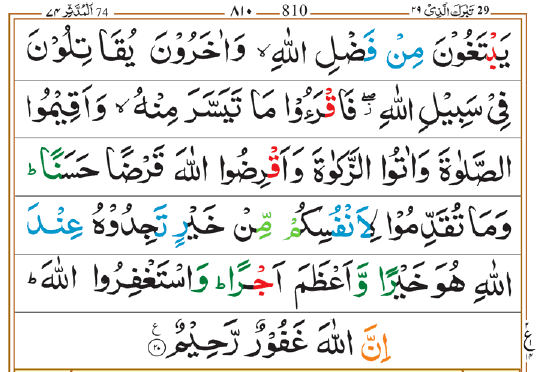 29 تَبٰرَكَ الَّذِیْ ٢٩ 810 ٨١٠ 74 اَلْمُدَّثِّر ٧٤
یَبْتَغُوْنَ مِنْ فَضْلِ اللّٰهِ ۙ وَاٰخَرُوْنَ یُقَاتِلُوْنَ
فِیْ سَبِیْلِ اللّٰهِ ۖ ز فَاقْرَءُوْا مَا تَیَسَّرَ مِنْهُ ۙ وَاَقِیْمُوا
الصَّلٰوةَ وَاٰتُوا الزَّكٰوةَ وَاَقْرِضُوا اللّٰهَ قَرْضًا حَسَنًا ؕ
وَمَا تُقَدِّمُوْا لِاَنْفُسِكُمْ مِّنْ خَیْرٍ تَجِدُوْهُ عِنْدَ
اللّٰهِ هُوَ خَیْرًا وَّاَعْظَمَ اَجْرًا ؕ وَاسْتَغْفِرُوا اللّٰهَ ؕ
اِنَّ اللّٰهَ غَفُوْرٌ رَّحِیْمٌ ۟ ع ٢٠